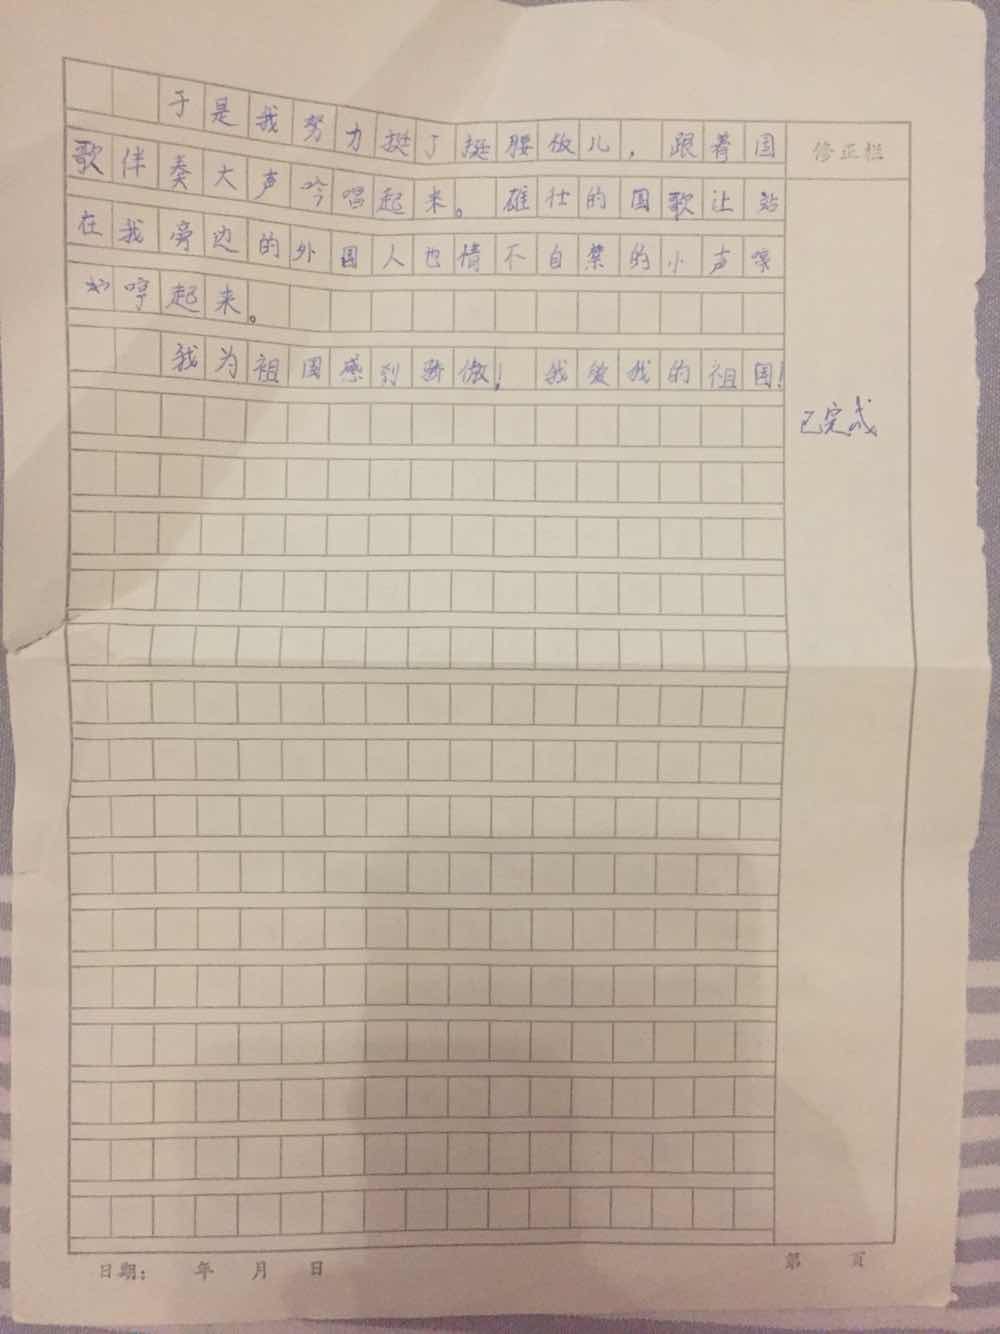 于是我努力挺了挺腰板儿，跟着国
修正栏
歌伴奏大声吟唱起来。雄壮的国歌让站
在我旁边的外国人也情不自禁的小声
哼起来。
我为祖国感到骄傲！我爱我的祖国！
已完成
日期： 年 月 日
第 页